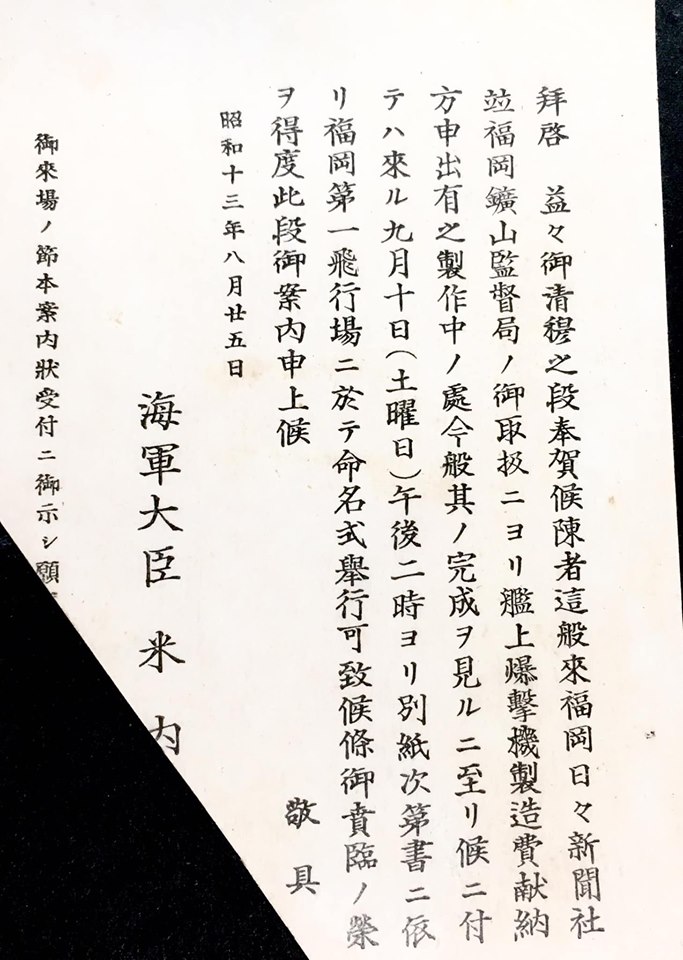 拜啓　益々御清穆之段奉賀候陳者這般來福岡日々新聞社
竝福岡鑛山監督局ノ御取扱ニヨリ艦上爆擊機製造費献納
方申出有之製作中ノ處今般其ノ完成ヲ見ルニ至リ候ニ付
テハ來ル九月十日(土曜日)午後二時ヨリ別紙次第書ニ依
リ福岡第一飛行場ニ於テ命名式擧行可致候條御賁臨ノ榮
ヲ得度此段御案内申上候
敬具
昭和十三年八月廿五日
海軍大臣　米内
御來場ノ節本案内狀受付ニ御示シ願